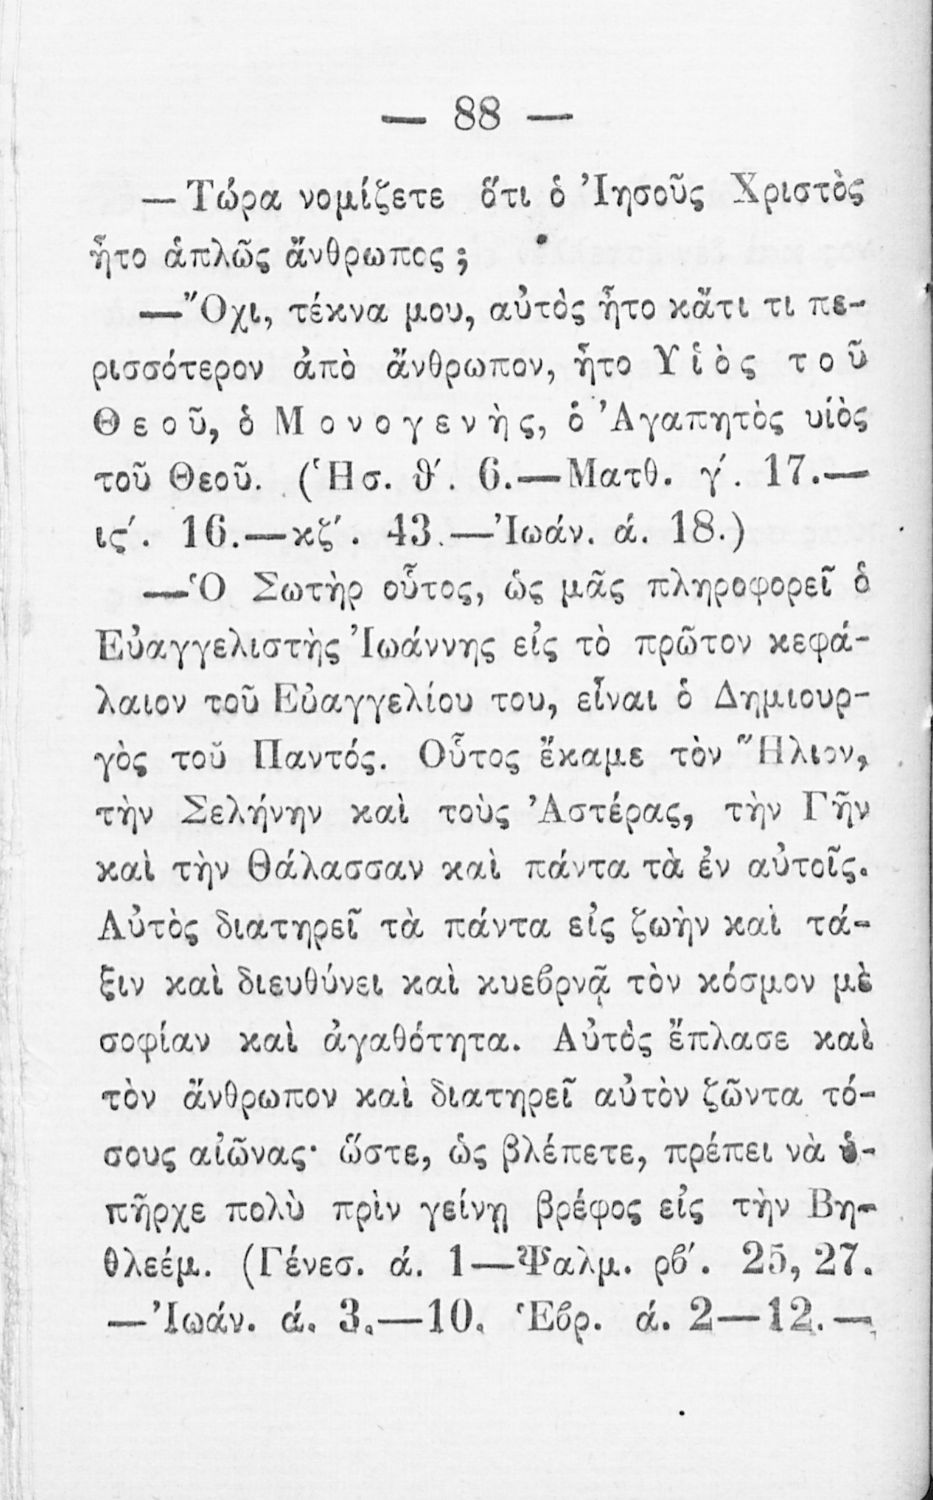 — 88 —
— Τώρα νομίζετε ὅτι ὁ Ἰησοῦς Χριστὸς
ἦτο ἁπλῶς ἄνθρωπος ;
—Ὄχι, τέκνα μου, αὐτὸς ἦτο κἄτι τι πε-
ρισσότερον ἀπὸ ἄνθρωπον, ἦτο Υἱὸς τοῦ
Θεοῦ, ὁ Μονογενὴς, ὁ Ἀγαπητὸς υἱὸς
τοῦ Θεοῦ. (Ἡσ. θ΄. 6.—Ματθ. γ΄. 17.—
ις΄. 16.—κζ΄. 43.—Ἰωάν. ά. 18.)
—Ὁ Σωτὴρ οὗτος, ὡς μᾶς πληροφορεῖ ὁ
Εὐαγγελιστὴς Ἰωάννης εἰς τὸ πρῶτον κεφά-
λαιον τοῦ Εὐαγγελίου του, εἶναι ὁ Δημιουρ-
γὸς τοῦ Παντός. Οὗτος ἔκαμε τὸν Ἥλιον,
τὴν Σελήνην καὶ τοὺς Ἀστέρας, τὴν Γῆν
καὶ τὴν Θάλασσαν καὶ πάντα τὰ ἐν αὐτοῖς.
Αὐτὸς διατηρεῖ τὰ πάντα εἰς ζωὴν καὶ τά-
ξιν καὶ διευθύνει καὶ κυεβρνᾷ τὸν κόσμον μὲ
σοφίαν καὶ ἀγαθότητα. Αὐτὸς ἔπλασε καὶ
τὸν ἄνθρωπον καὶ διατηρεῖ αὐτὸν ζῶντα τό-
σους αἰῶνας· ὥστε, ὡς βλέπετε, πρέπει νὰ ὑ-
πῆρχε πολὺ πρὶν γείνῃ βρέφος εἰς τὴν Βη-
θλεέμ. (Γένεσ. ά. 1—Ψαλμ. ρβ΄. 25, 27.
—Ἰωάν. ά. 3.—10. Ἑβρ. ά. 2—12.—